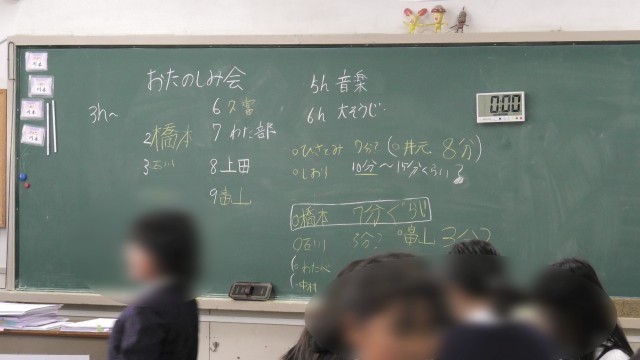 おたのしみ会
3h~
2 橋本
3 古川
6 久富
7 わた部
8 上田
9 畠山
5h 音楽
6h 大そうじ
0:00
○ひさとみ 7分? (○井元 8分)
○しおり 10分~15分くらい?
○橋本 7分ぐらい
○古川 3分? ○畠山 3分?
(○わたべ
中村